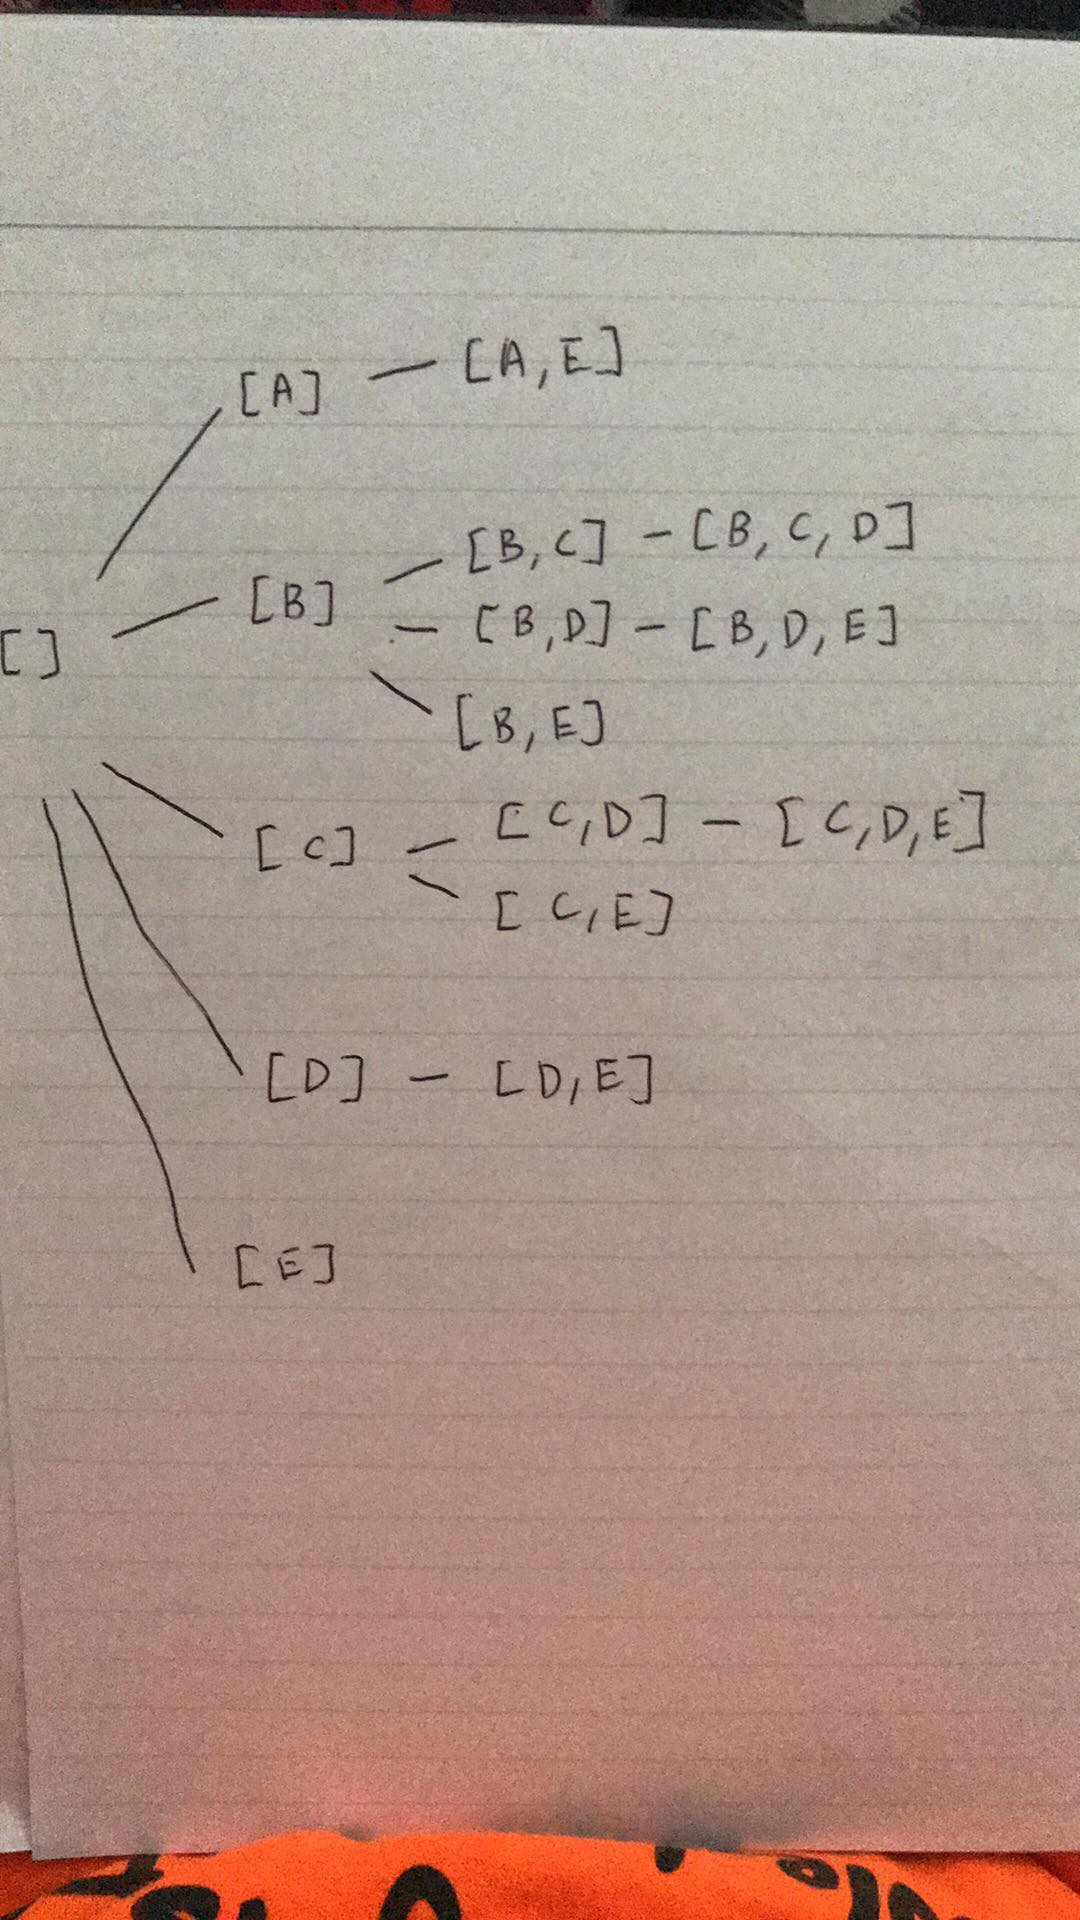 [A] — [A, E]
[B, C] — [B, C, D]
[B] — [B, D] — [B, D, E]
[]
[B, E]
[C] — [C, D] — [C, D, E]
[C, E]
[D] — [D, E]
[E]